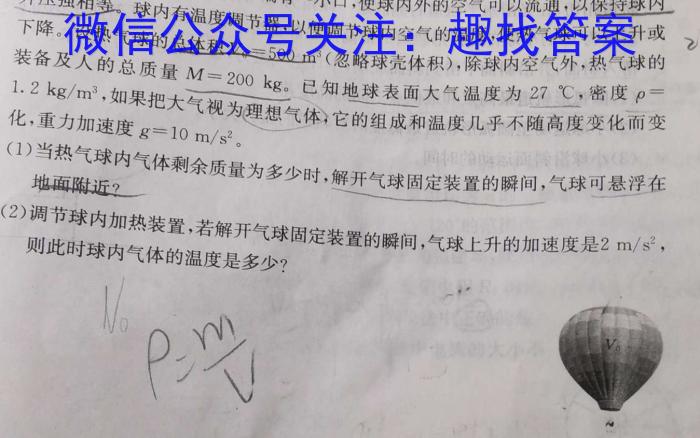 小口,使球内外的空气可以流通,以保持球内
外压强相等。球内有温度调节器,以便调节球内空气的温度,使热气球可以上升或
微信公众号关注：趣找答案
下降。设热气球的总体积V₀=500 m³(忽略球壳体积),除球内空气外,热气球的
装备及人的总质量 M=200 kg。已知地球表面大气温度为 27 ℃,密度 ρ=
1.2 kg/m³,如果把大气视为理想气体,它的组成和温度几乎不随高度变化而变
化,重力加速度 g=10 m/s²。
(1)当热气球内气体剩余质量为多少时,解开气球固定装置的瞬间,气球可悬浮在
地面附近?
(2)调节球内加热装置,若解开气球固定装置的瞬间,气球上升的加速度是2 m/s²,
则此时球内气体的温度是多少?
V₀
ρ=m/V
V₀